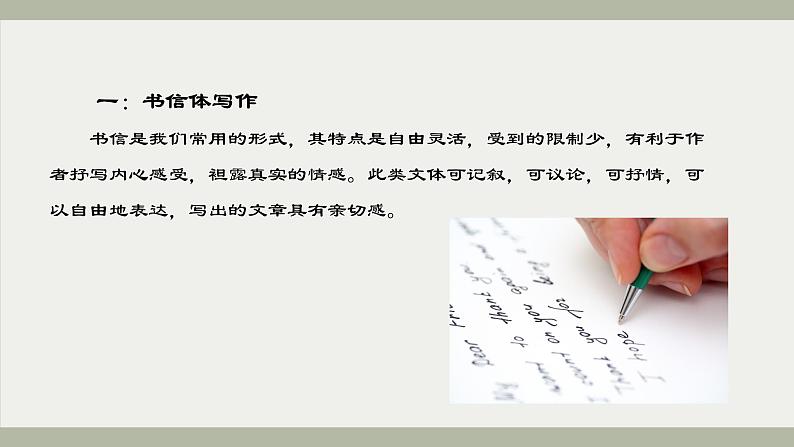 一：书信体写作
书信是我们常用的形式，其特点是自由灵活，受到的限制少，有利于作
者抒写内心感受，袒露真实的情感。此类文体可记叙，可议论，可抒情，可
以自由地表达，写出的文章具有亲切感。
Dear
to thank you
want to
count on you
Thank you for
I hope